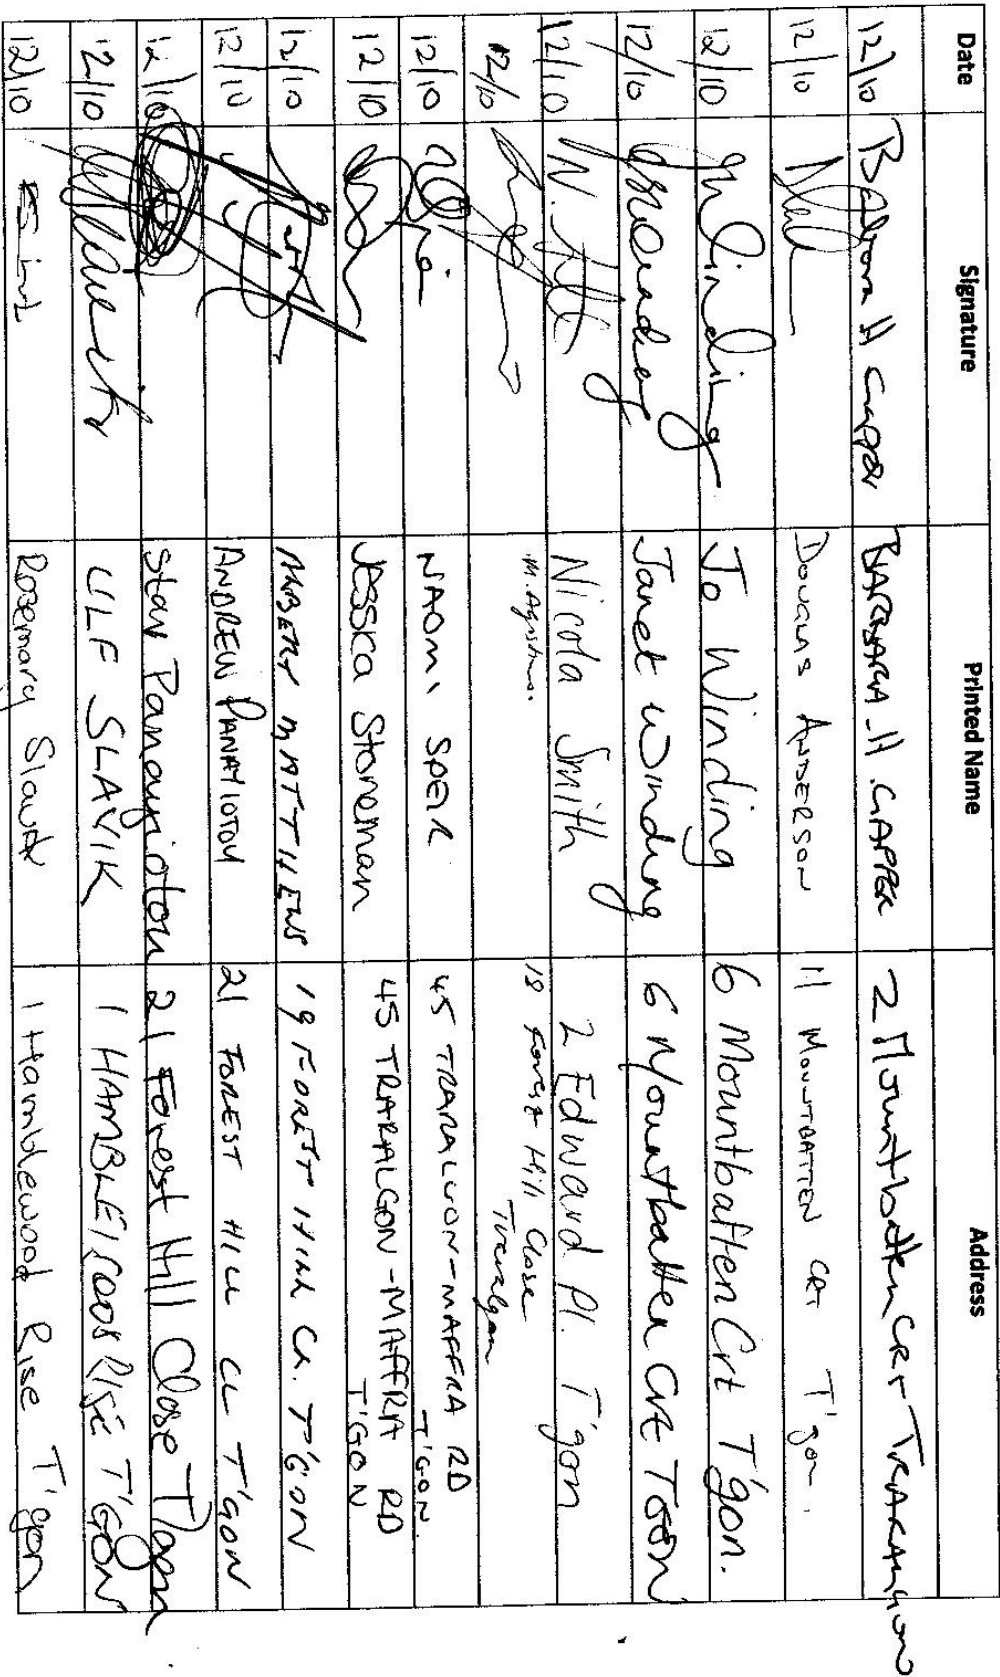 Date Signature Printed Name Address
12/10 Barbara H Capper BARBARA.H.CAPPER 2 Mountbatten CRT TRARALGON
12/10 DOUGLAS ANDERSON 11 MOUNTBATTEN CRT T'gon.
12/10 Jo Winding 6 Mountbatten Crt T'gon.
12/10 Janet Winding 6 Mountbatten Crt TGON
12/10 N. Smith Nicola Smith 2 Edward Pl. T'gon
12/10 18 Forest Hill Close
Traralgon
12/10 NAOMI SPEIR 45 TRARALGON-MAFFRA RD
T'GON.
12/10 Jessica Stoneman 45 TRARALGON-MAFFRA RD
T'GON
12/10 ALBERT MATTHEWS 19 FOREST HILL CL. T'GON
12/10 ANDREW PANAYIOTOU 21 FOREST HILL CL T'GON
12/10 Stav Panayiotou 21 Forest Hill Close T'gon
12/10 ULF SLAVIK 1 RISE T'GON
12/10 Rosemary Slavik 1 Hamblewood Rise T'gon